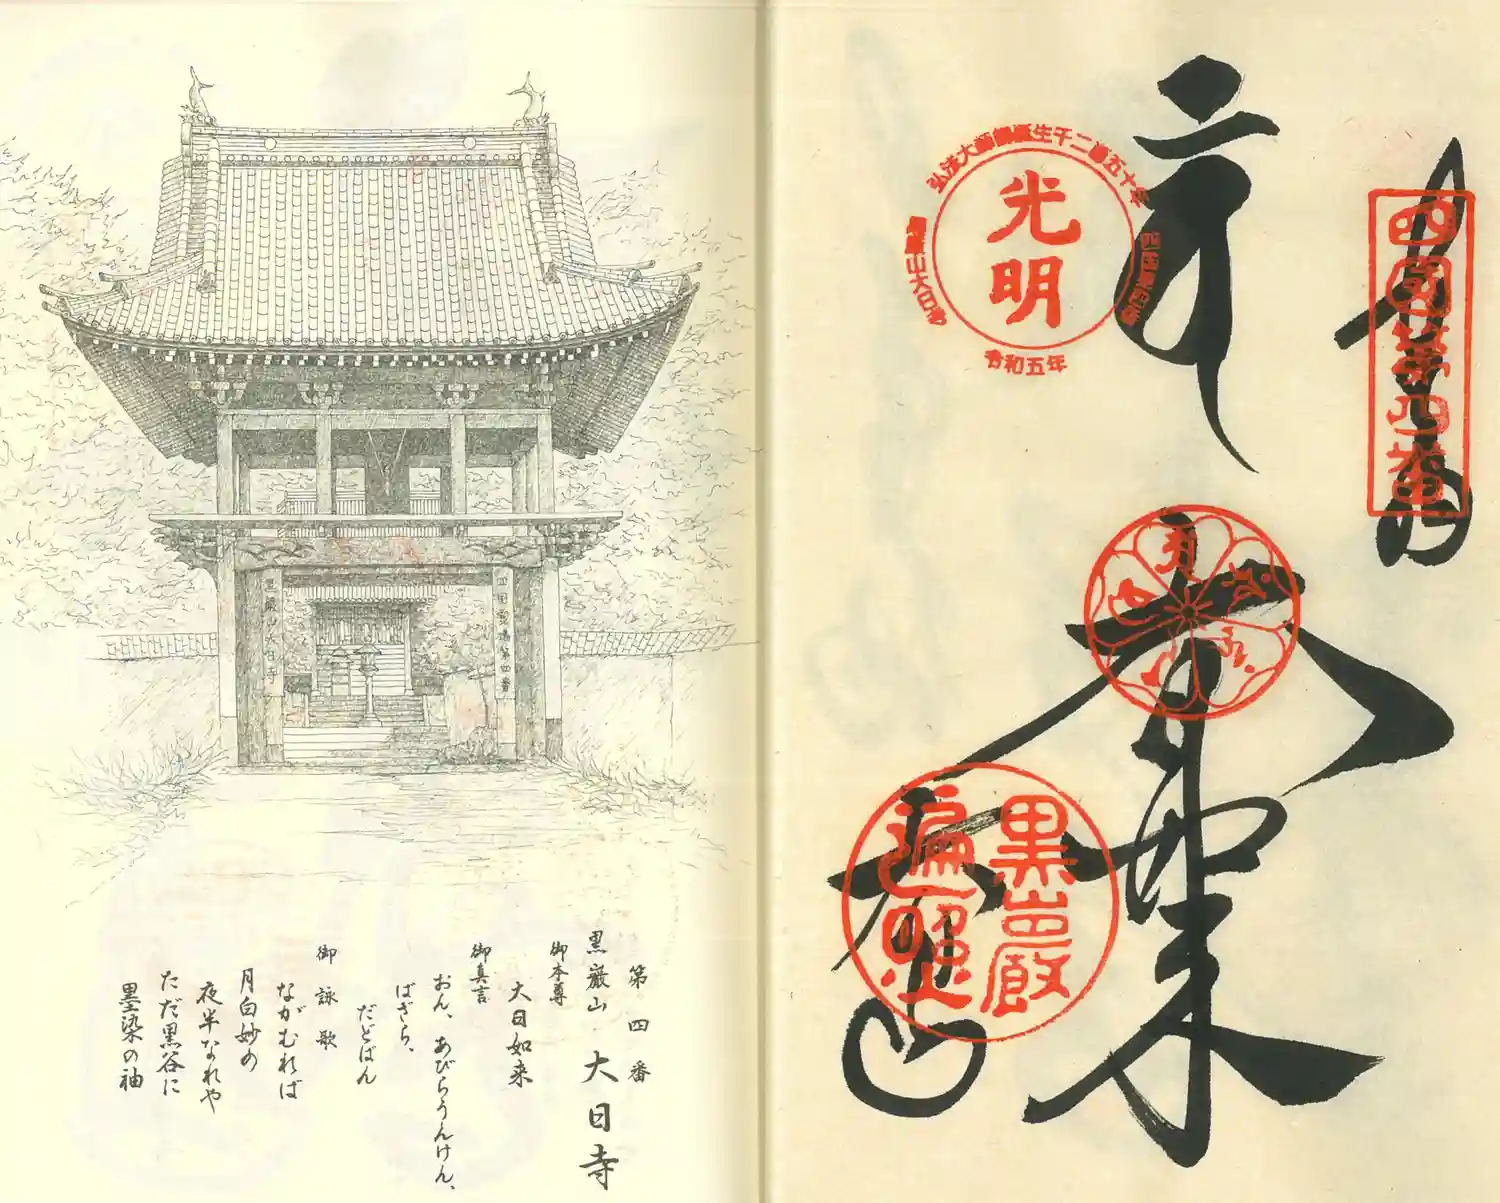 第四番
黒巌山 大日寺
御本尊
大日如来
御真言
おん、あびらうんけん、
ばざら、
だどばん
御詠歌
ながむれば
月白妙の
夜半なれや
ただ黒谷に
墨染の袖
黒巌山大日寺
四国霊場第四番
奉納
大日如来
大日寺
四國第四番
光明
令和五年
黒巌山
遍照